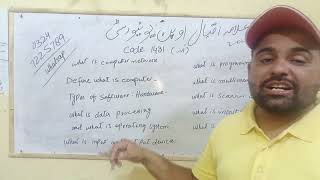 علامہ اقبال اوپن یونیورسٹی
Code 1431 (
0324
7225789
whatsap
what is computer network
what is program
Define what is computer
what is multime
Types of Software . Hardware
what is Scanner
what is data processing
what is
and what is operating system
what is
what is input and out Put device